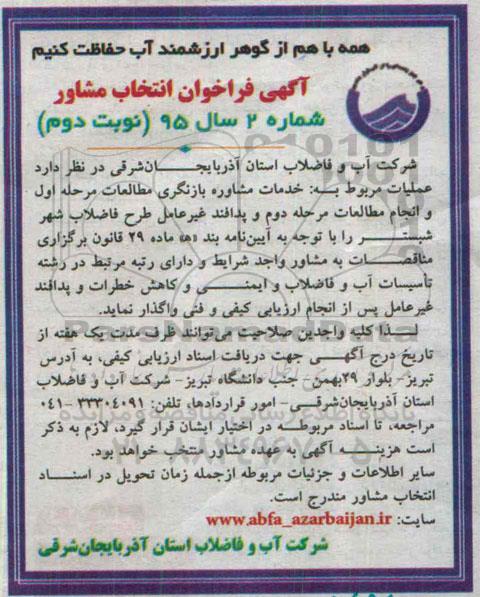 همه با هم از گوهر ارزشمند آب حفاظت کنیم
آگهی فراخوان انتخاب مشاور
شماره ۲ سال ۹۵ (نوبت دوم)
شرکت آب و فاضلاب استان آذربایجان‌شرقی در نظر دارد
عملیات مربوط به: خدمات مشاوره بازنگری مطالعات مرحله اول
و انجام مطالعات مرحله دوم و پدافند غیرعامل طرح فاضلاب شهر
شبستر را با توجه به آیین‌نامه بند «ه» ماده ۲۹ قانون برگزاری
مناقصات به مشاور واجد شرایط و دارای رتبه مرتبط در رشته
تاسیسات آب و فاضلاب و ایمنی و کاهش خطرات و پدافند
غیرعامل پس از انجام ارزیابی کیفی و فنی واگذار نماید.
لذا کلیه واجدین صلاحیت می‌توانند ظرف مدت یک هفته از
تاریخ درج آگهی جهت دریافت اسناد ارزیابی کیفی، به آدرس
تبریز- بلوار ۲۹بهمن- جنب دانشگاه تبریز- شرکت آب و فاضلاب
استان آذربایجان‌شرقی- امور قراردادها، تلفن: ۳۳۳۰۴۰۹۱-۰۴۱
مراجعه، تا اسناد مربوطه در اختیار ایشان قرار گیرد، لازم به ذکر
است هزینه آگهی به عهده مشاور منتخب خواهد بود.
سایر اطلاعات و جزئیات مربوطه ازجمله زمان تحویل در اسناد
انتخاب مشاور مندرج است.
سایت: www.abfa_azarbaijan.ir
شرکت آب و فاضلاب استان آذربایجان‌شرقی